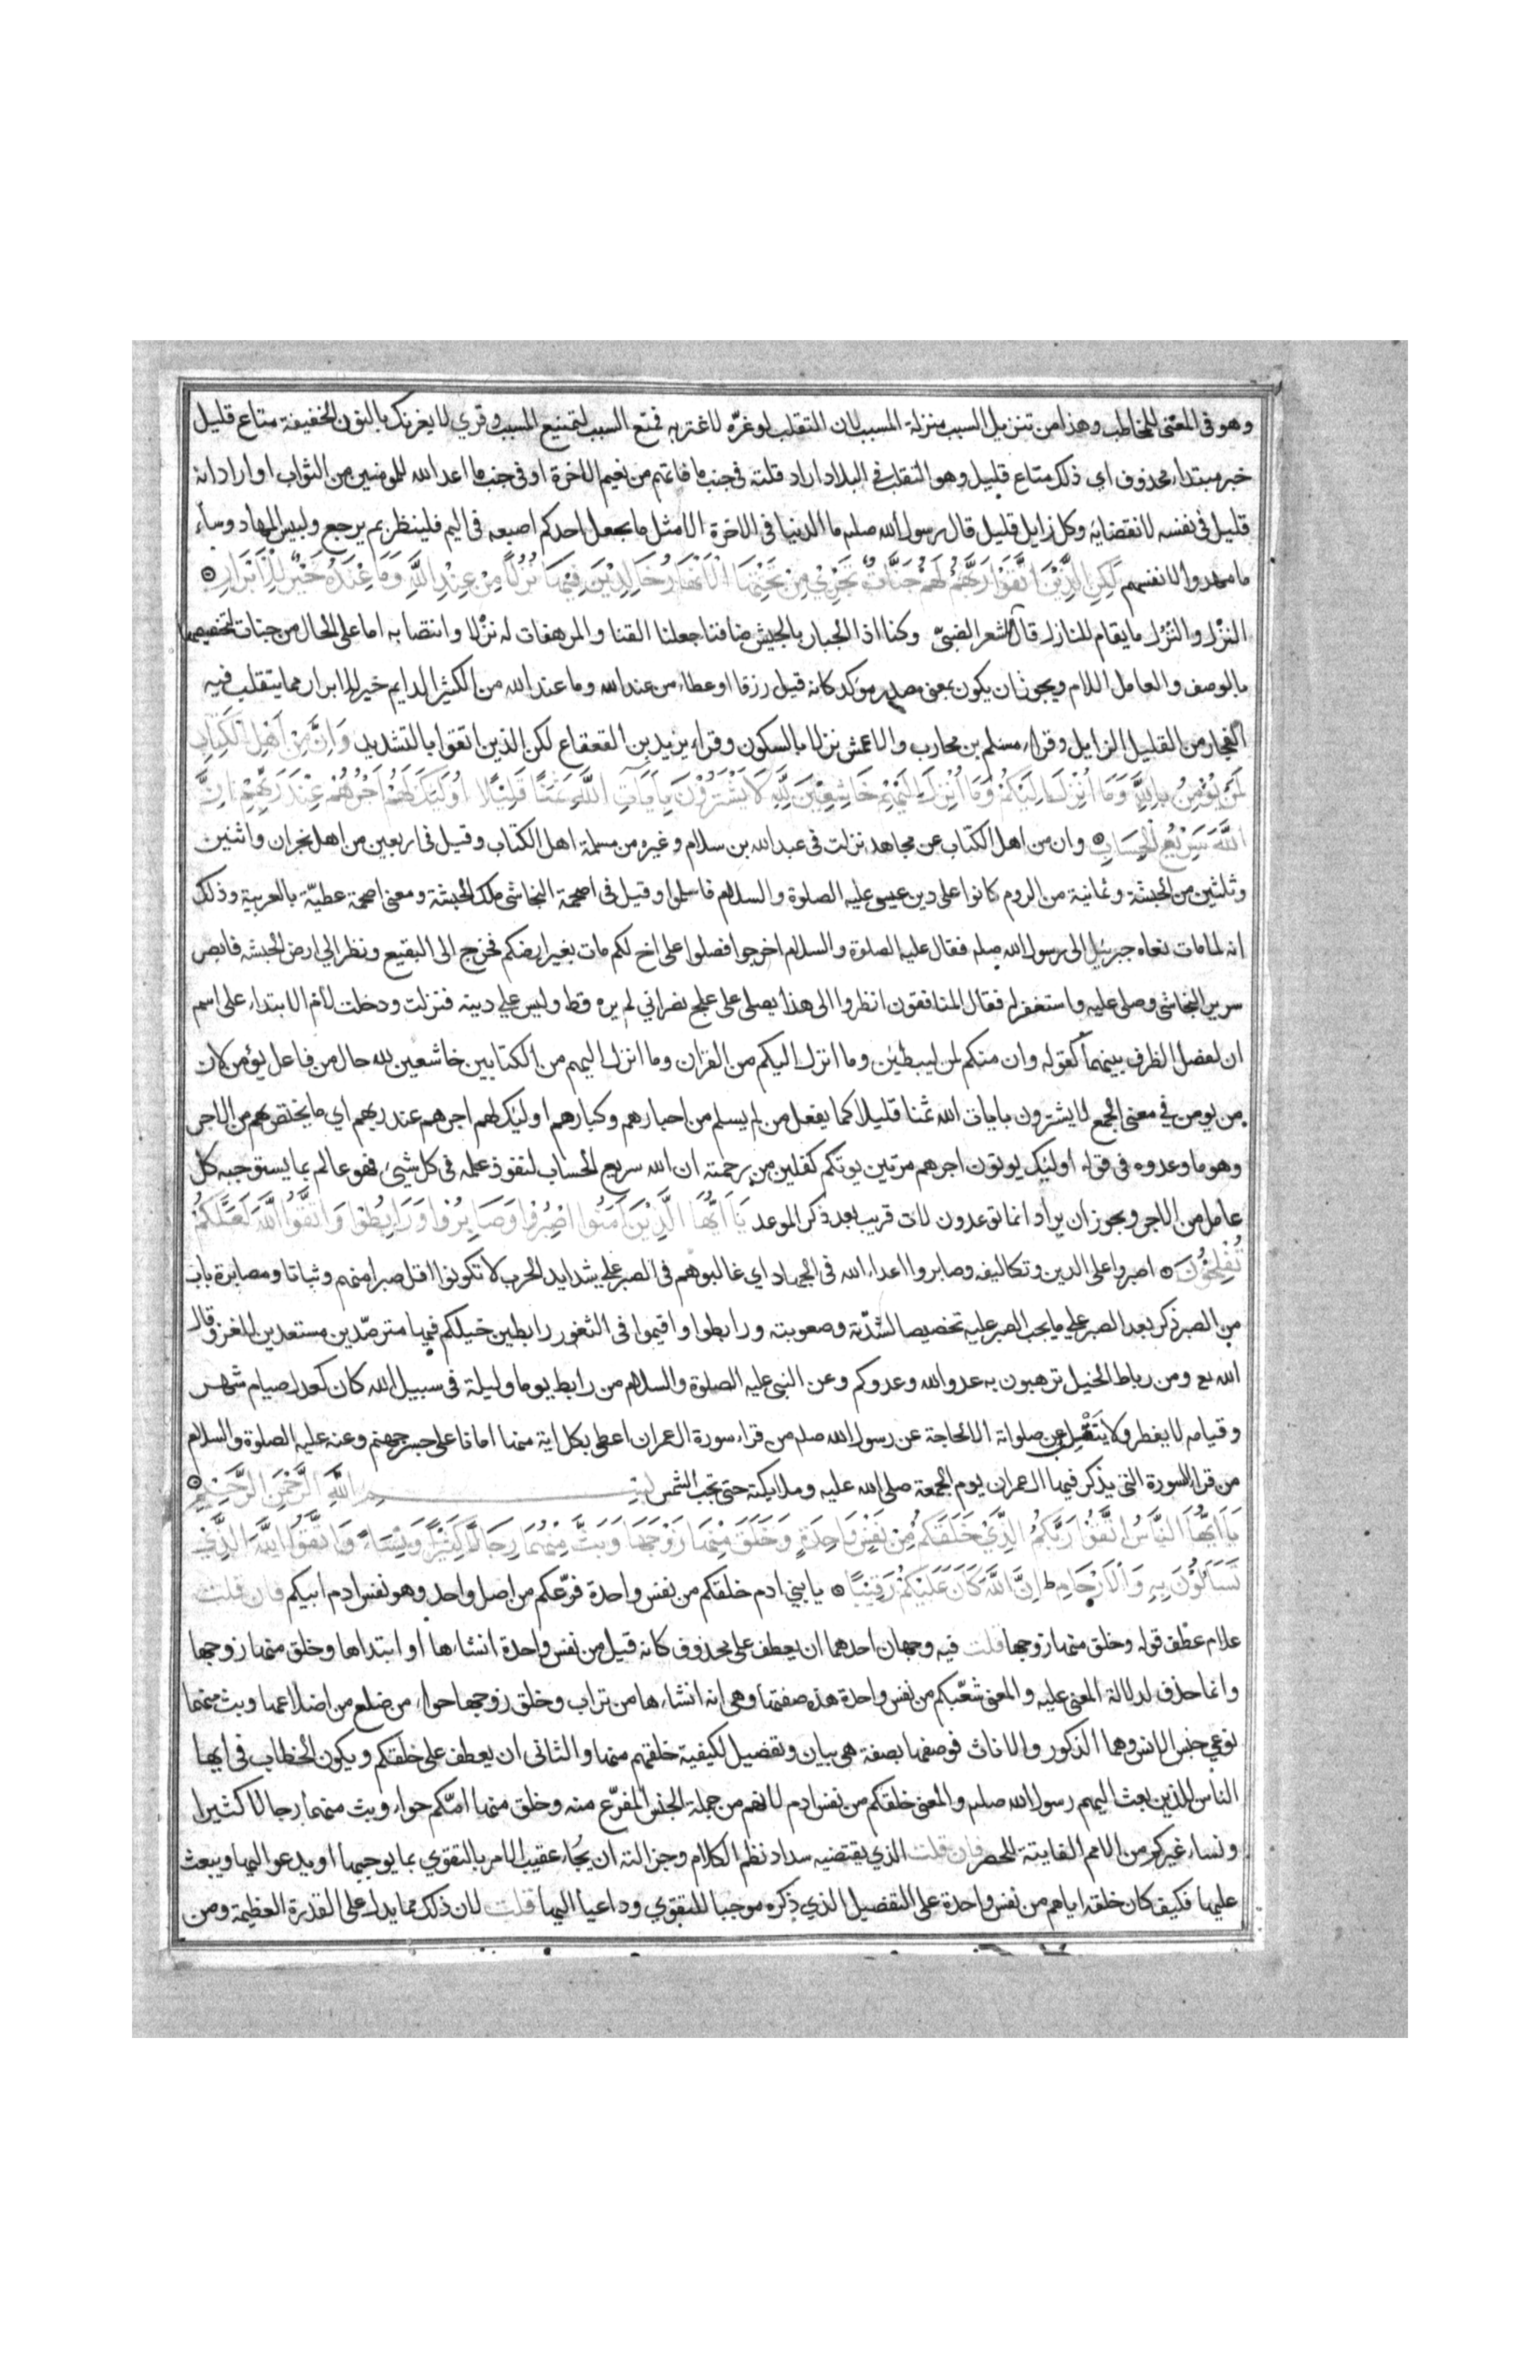 وهو فى المعنى للمخاطب وهذا من تنزيل السبب منزلة المسبب لان التقلب لو غرّه لاغتر به فمنع السبب لتمنيع المسبب وقري لا يغرنك بالنون الخفيفة متاع قليل
خبر مبتداء محذوف اي ذلك متاع قليل وهو التقلب في البلاد اراد قلته فى جنب ما فاتهم من نعيم الاخرة او فى جنب ما اعد الله للمومنين من الثواب او اراد انه
قليل فى نفسه لانقضايه وكل زايل قليل قال رسول الله صلم ما الدنيا فى الاخرة الا مثل ما يجعل احدكم اصبعه فى اليم فلينظر بم يرجع ولبيس المهاد وساء
ما مهدوا لانفسهم لَكِنِ الَّذِيْنَ اتَّقَوْا رَبَّهُمْ لَهُمْ جَنَّاتٌ تَجْرِيْ مِنْ تَحْتِهَا الْاَنْهَارُ خَالِدِيْنَ فِيْهَا نُزُلًا مِنْ عِنْدِ اللَّهِ وَمَا عِنْدَ اللَّهِ خَيْرٌ لِلْاَبْرَارِ
النزْل والنُزُل ما يقام للنازل قال الشعر الضبيّ وكنا اذا الجبار بالجيش ضافنا جعلنا القنا والمرهفات له نزْلا وانتصابه اما على الحال من جنات لتخصيصها
بالوصف والعامل اللام ويجوز ان يكون بمعنى مصدر موكد كانه قيل رزقا او عطاء من عند الله وما عند الله من الكثير الدايم خير للابرار مما يتقلب فيه
الفجار من القليل الزايل وقراء مسلم بن محارب والاعمش نزلا بالسكون وقراء يزيد بن القعقاع لكن الذين اتقوا بالتشديد وَاِنَّ مِنْ اَهْلِ الْكِتَابِ
لَمَنْ يُؤْمِنُ بِاللَّهِ وَمَا اُنْزِلَ اِلَيْكُمْ وَمَا اُنْزِلَ اِلَيْهِمْ خَاشِعِيْنَ لِلَّهِ لَا يَشْتَرُوْنَ بِاَيَاتِ اللَّهِ ثَمَنًا قَلِيْلًا اُولَئِكَ لَهُمْ اَجْرُهُمْ عِنْدَ رَبِّهِمْ اِنَّ
اللَّهَ سَرِيْعُ الْحِسَابِ وان من اهل الكتاب عن مجاهد نزلت فى عبد الله بن سلام وغيره من مسلمة اهل الكتاب وقيل فى اربعين من اهل نجران واثنين
وثلثين من الحبشة وثمانية من الروم كانوا على دين عيسى عليه الصلوة والسلام فاسلموا وقيل فى اصحمة النجاشى ملك الحبشة ومعنى اصحمة عطيّة بالعربية وذلك
انه لما مات نعاه جبريل الى رسول الله صلم فقال عليه الصلوة والسلام اخرجوا فصلوا على اخ لكم مات بغير ارضكم فخرج الى البقيع ونظر الي ارض الحبشه فابصر
سرير النجاشى وصلى عليه واستغفر له فقال المنافقون انظروا الى هذا يصلى على علج نصراني لم يره قط وليس علي دينه فنزلت ودخلت لام الابتداء على اسم
ان لفصل الظرف بينهما كقوله وان منكم لمن ليبطئن وما انزل اليكم من القران وما انزل اليهم من الكتابين خاشعين لله حال من فاعل يؤمن لان
من يومن في معنى الجمع لا يشترون بايات الله ثمنا قليلا كما يفعل من لم يسلم من احبارهم وكبارهم اولئك لهم اجرهم عند ربهم اي ما يختص بهم من الاجر
وهو ما وعدوه فى قوله اولئك يوتون اجرهم مرتين يوتكم كفلين من رحمته ان الله سريع الحساب لنفوذ علمه فى كل شيئ فهو عالم بما يستوجبه كل
عامل من الاجر ويجوز ان يراد انما توعدون لات قريب بعد ذكر الموعد يَا اَيُّهَا الَّذِيْنَ آمَنُوا اصْبِرُوا وَصَابِرُوا وَرَابِطُوا وَاتَّقُوا اللَّهَ لَعَلَّكُمْ
تُفْلِحُوْنَ اصبروا على الدين وتكاليفه وصابروا اعداء الله فى الجهاد اي غالبوهم فى الصبر علي شدايد الحرب لا تكونوا اقل صبرا منهم وثباتا ومصابرة باب
من الصبر ذكر بعد الصبر علي ما يجب الصبر عليه تخصيصا لشدّته وصعوبته ورابطوا واقيموا فى الثغور رابطين خيلكم فيها مترصّدين مستعدين للغزو قال
الله تع ومن رباط الخيل ترهبون به عدو الله وعدوكم وعن النبى عليه الصلوة والسلام من رابط يوما وليلة فى سبيل الله كان كعدل صيام شهر
وقيامه لا يفطر ولا يَنْفَتِل عن صلواته الا لحاجة عن رسول الله صلم من قراء سورة ال عمران اعطى بكل اية منها امانا على جسر جهنم وعنه عليه الصلوة والسلام
من قراء السورة التى يذكر فيها ال عمران يوم الجمعة صلى الله عليه وملايكته حتى تجب الشمس بسم اللَّهِ الرَّحْمَنِ الرَّحِيْمِ
يَا اَيُّهَا النَّاسُ اتَّقُوْا رَبَّكُمُ الَّذِيْ خَلَقَكُمْ مِنْ نَفْسٍ وَاحِدَةٍ وَخَلَقَ مِنْهَا زَوْجَهَا وَبَثَّ مِنْهُمَا رِجَالًا كَثِيْرًا وَنِسَاءً وَاتَّقُوا اللَّهَ الَّذِيْ
تَسَاءَلُوْنَ بِهِ وَالْاَرْحَامِ ط اِنَّ اللَّهَ كَانَ عَلَيْكُمْ رَقِيْبًا يا بني ادم خلقكم من نفس واحدة فرّعكم من اصل واحد وهو نفس ادم ابيكم فان قلت
علام عطف قوله وخلق منها زوجها قلت فيه وجهان احدهما ان يعطف على محذوف كانه قيل من نفس واحدة انشاءها او ابتداها وخلق منها زوجها
وانما حذف لدلالة المعنى عليه والمعنى شعّبكم من نفس واحدة هذه صفتها وهى انه انشاءها من تراب وخلق زوجها حواء من ضلع من اضلاعها وبث منهما
نوعي جنس الانس وهما الذكور والاناث فوصفها بصفة هى بيان وتفصيل لكيفية خلقهم منها والثانى ان يعطف على خلقكم ويكون الخطاب فى ايها
الناس للذين بعث اليهم رسول الله صلم والمعنى خلقكم من نفس ادم لانهم من جملة الجنس المفرّع منه وخلق منها امّكم حواء وبث منهما رجالا كثيرا
ونساء غيركم من الامم الفايتة للحصر فان قلت الذي يقتضيه سداد نظم الكلام وجزالته ان يجاء عقيب الامر بالتقوي بما يوجبها او يدعو اليها ويبعث
عليها فكيف كان خلقه اياهم من نفس واحدة على التفصيل الذي ذكره موجبا للتقوي وداعيا اليها قلت لان ذلك مما يدل على القدرة العظيمة ومن